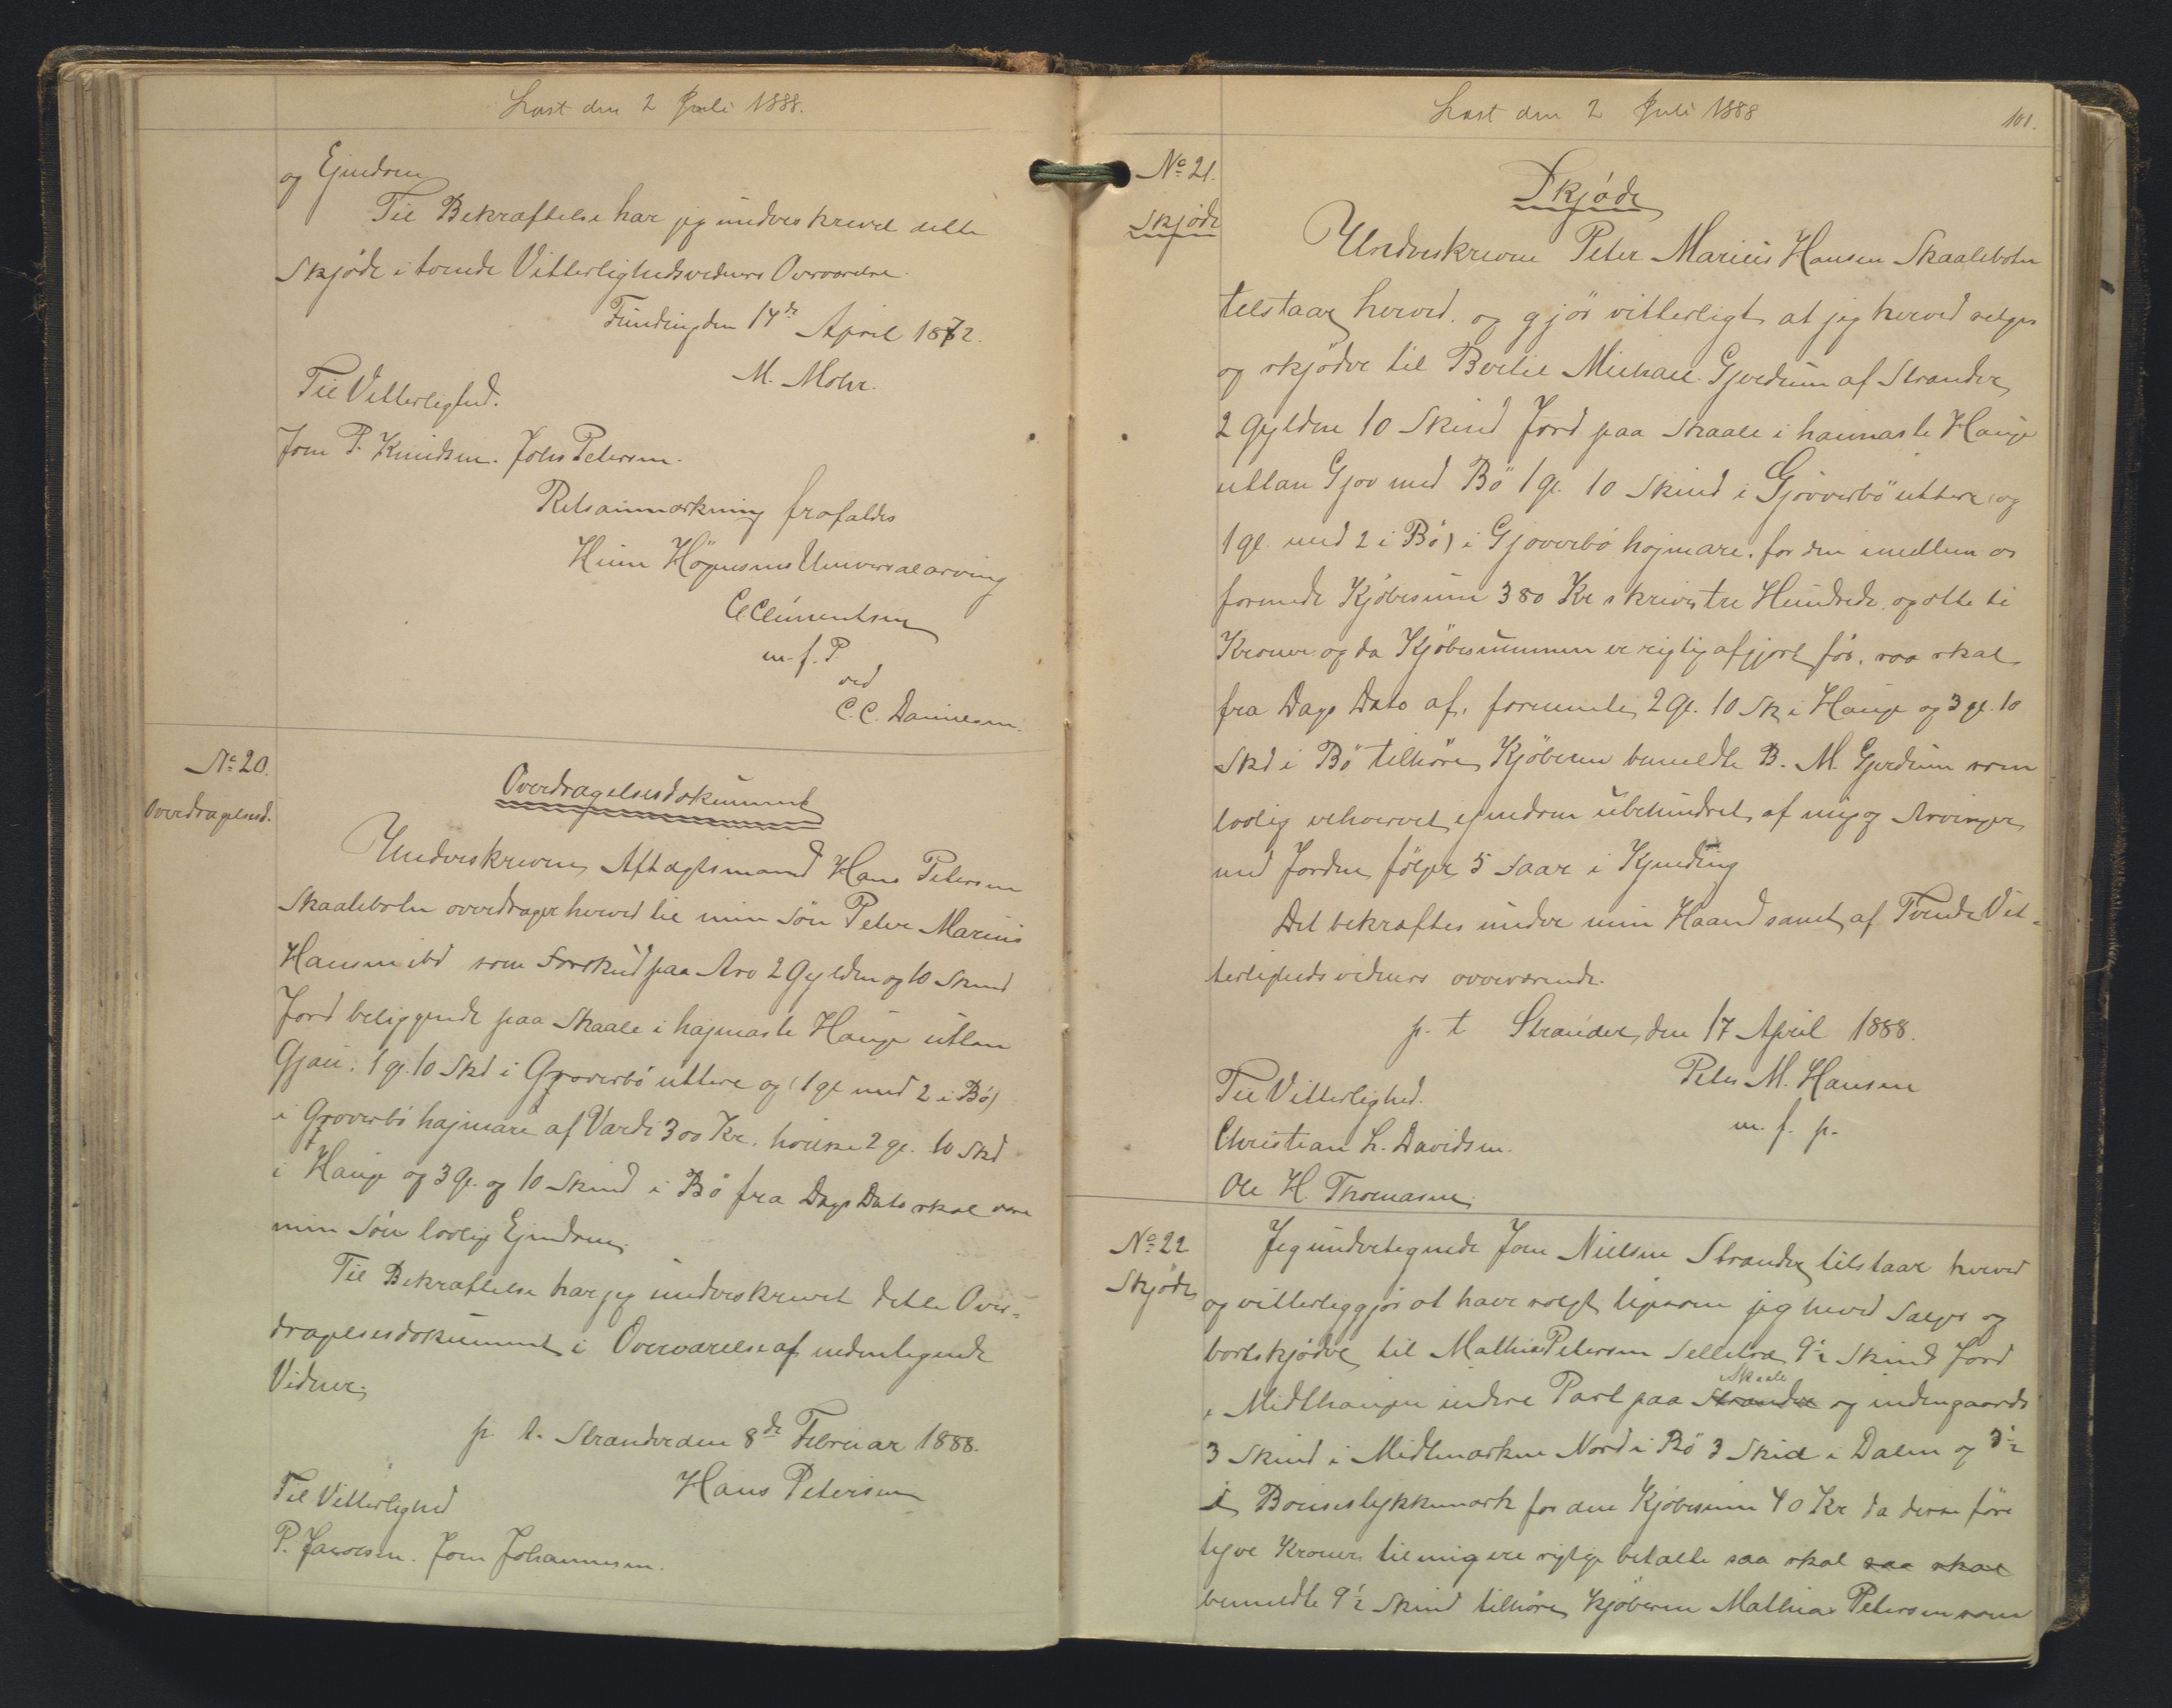 Læst den 2 Juli 1888.
og Ejendom
Til Bekræftelse har jeg underskrevet dette
Skjöde i tvende Vitterlighedsvidners Overværelse.
Funding den 14de April 1872.
M. Mohr.
Til Vitterlighed.
Joen P. Knudsen. Johs Petersen.
Retsanmærkning frafaldes
Huin Högnesens Universalarving
C. Clementsen
m. f. P.
ved
C. C. Danielsen.
No 20.
Overdragelsesd.
Overdragelsesdokument
Underskrevne Aftægtsmand Hans Petersen
Skaalebotn overdrager herved til min Sön Peter Marius
Hansen ibd som Forskud paa Arv 2 Gylden og 10 Skind
Jord beliggende paa Skaale i hajmaste Hauge utlan
Gjau: 1 gl. 10 Skd i Gjoverbö uttere og (1 gl med 2 i Bö)
i Gjoverbö hajmare af Værdi 300 Kr. hvilke 2 gl. 10 Skd
i Hauge og 3 Gl. og 10 Skind i Bö fra Dags Dato skal være
min Sön lovlige Ejendom.
Til Bekræftelse har jeg underskrevet dette Over-
dragelsesdokument i Overværelse af undertegnede
Vidner.
p. t. Strander den 8de Februar 1888.
Hans Petersen
Til Vitterlighed
P. Jacobsen. Joen Johannesen.
Læst den 2 Juli 1888
101.
No 21.
Skjöde
Skjöde
Underskrevne Peter Marius Hansen Skaalebotn
tilstaar herved og gjör vitterligt at jeg herved sælger
og skjöder til Bertel Michael Gjerdum af Strander
2 Gylden 10 Skind Jord paa Skaale i haimaste Hauge
utlan Gjov med Bö 1 gl. 10 Skind i Gjovverbö uttere og
1 gl. med 2 i Bö) i Gjoverbö hajmare. for den imellem os
formede Kjöbesum 380 Kr skriver tre Hundrede og otte ti
Kroner og da Kjöbesummen er rigtig afgjort for, saa skal
fra Dags Dato af, formeldte 2 Gl. 10 Sk i Hauge og 3 gl. 10
Skd i Bö tilhöre Kjöberen bemeldte B. M. Gjerdum som
lovlig erhvervet ejendom ubehindret af mig og Arvinger
med Jorden fölger 5 Faar i Kynding
Det bekræftes under min Haand samt af Tvende Vit-
terligheds vidners overværende.
p. t Strander, den 17 April 1888.
Peter M. Hansen
m. f. p.
Til Vitterlighed.
Christian L. Davidsen.
Ole H. Thomasen.
No 22
Skjöde
Jeg undertegnede Joen Nielsen Strander tilstaar herved
og vitterliggjör at have solgt ligesom jeg herved Sælger og
bortskjöder til Mathias Petersen Selletræ 9½ Skind Jord
i Midthaugen indere Part paa Strander Skaale og indengaards
3 Skind i Midlmarken Nord i Bö 3 Skid i Dalen og 3½
i Bouseslykkumark for den Kjöbesum 40 Kr da disse före
tyve Kroner til mig ere rigtige betalte saa skal saa skal
bemeldte 9½ Skind tilhöre Kjöberen Mathias Petersen som